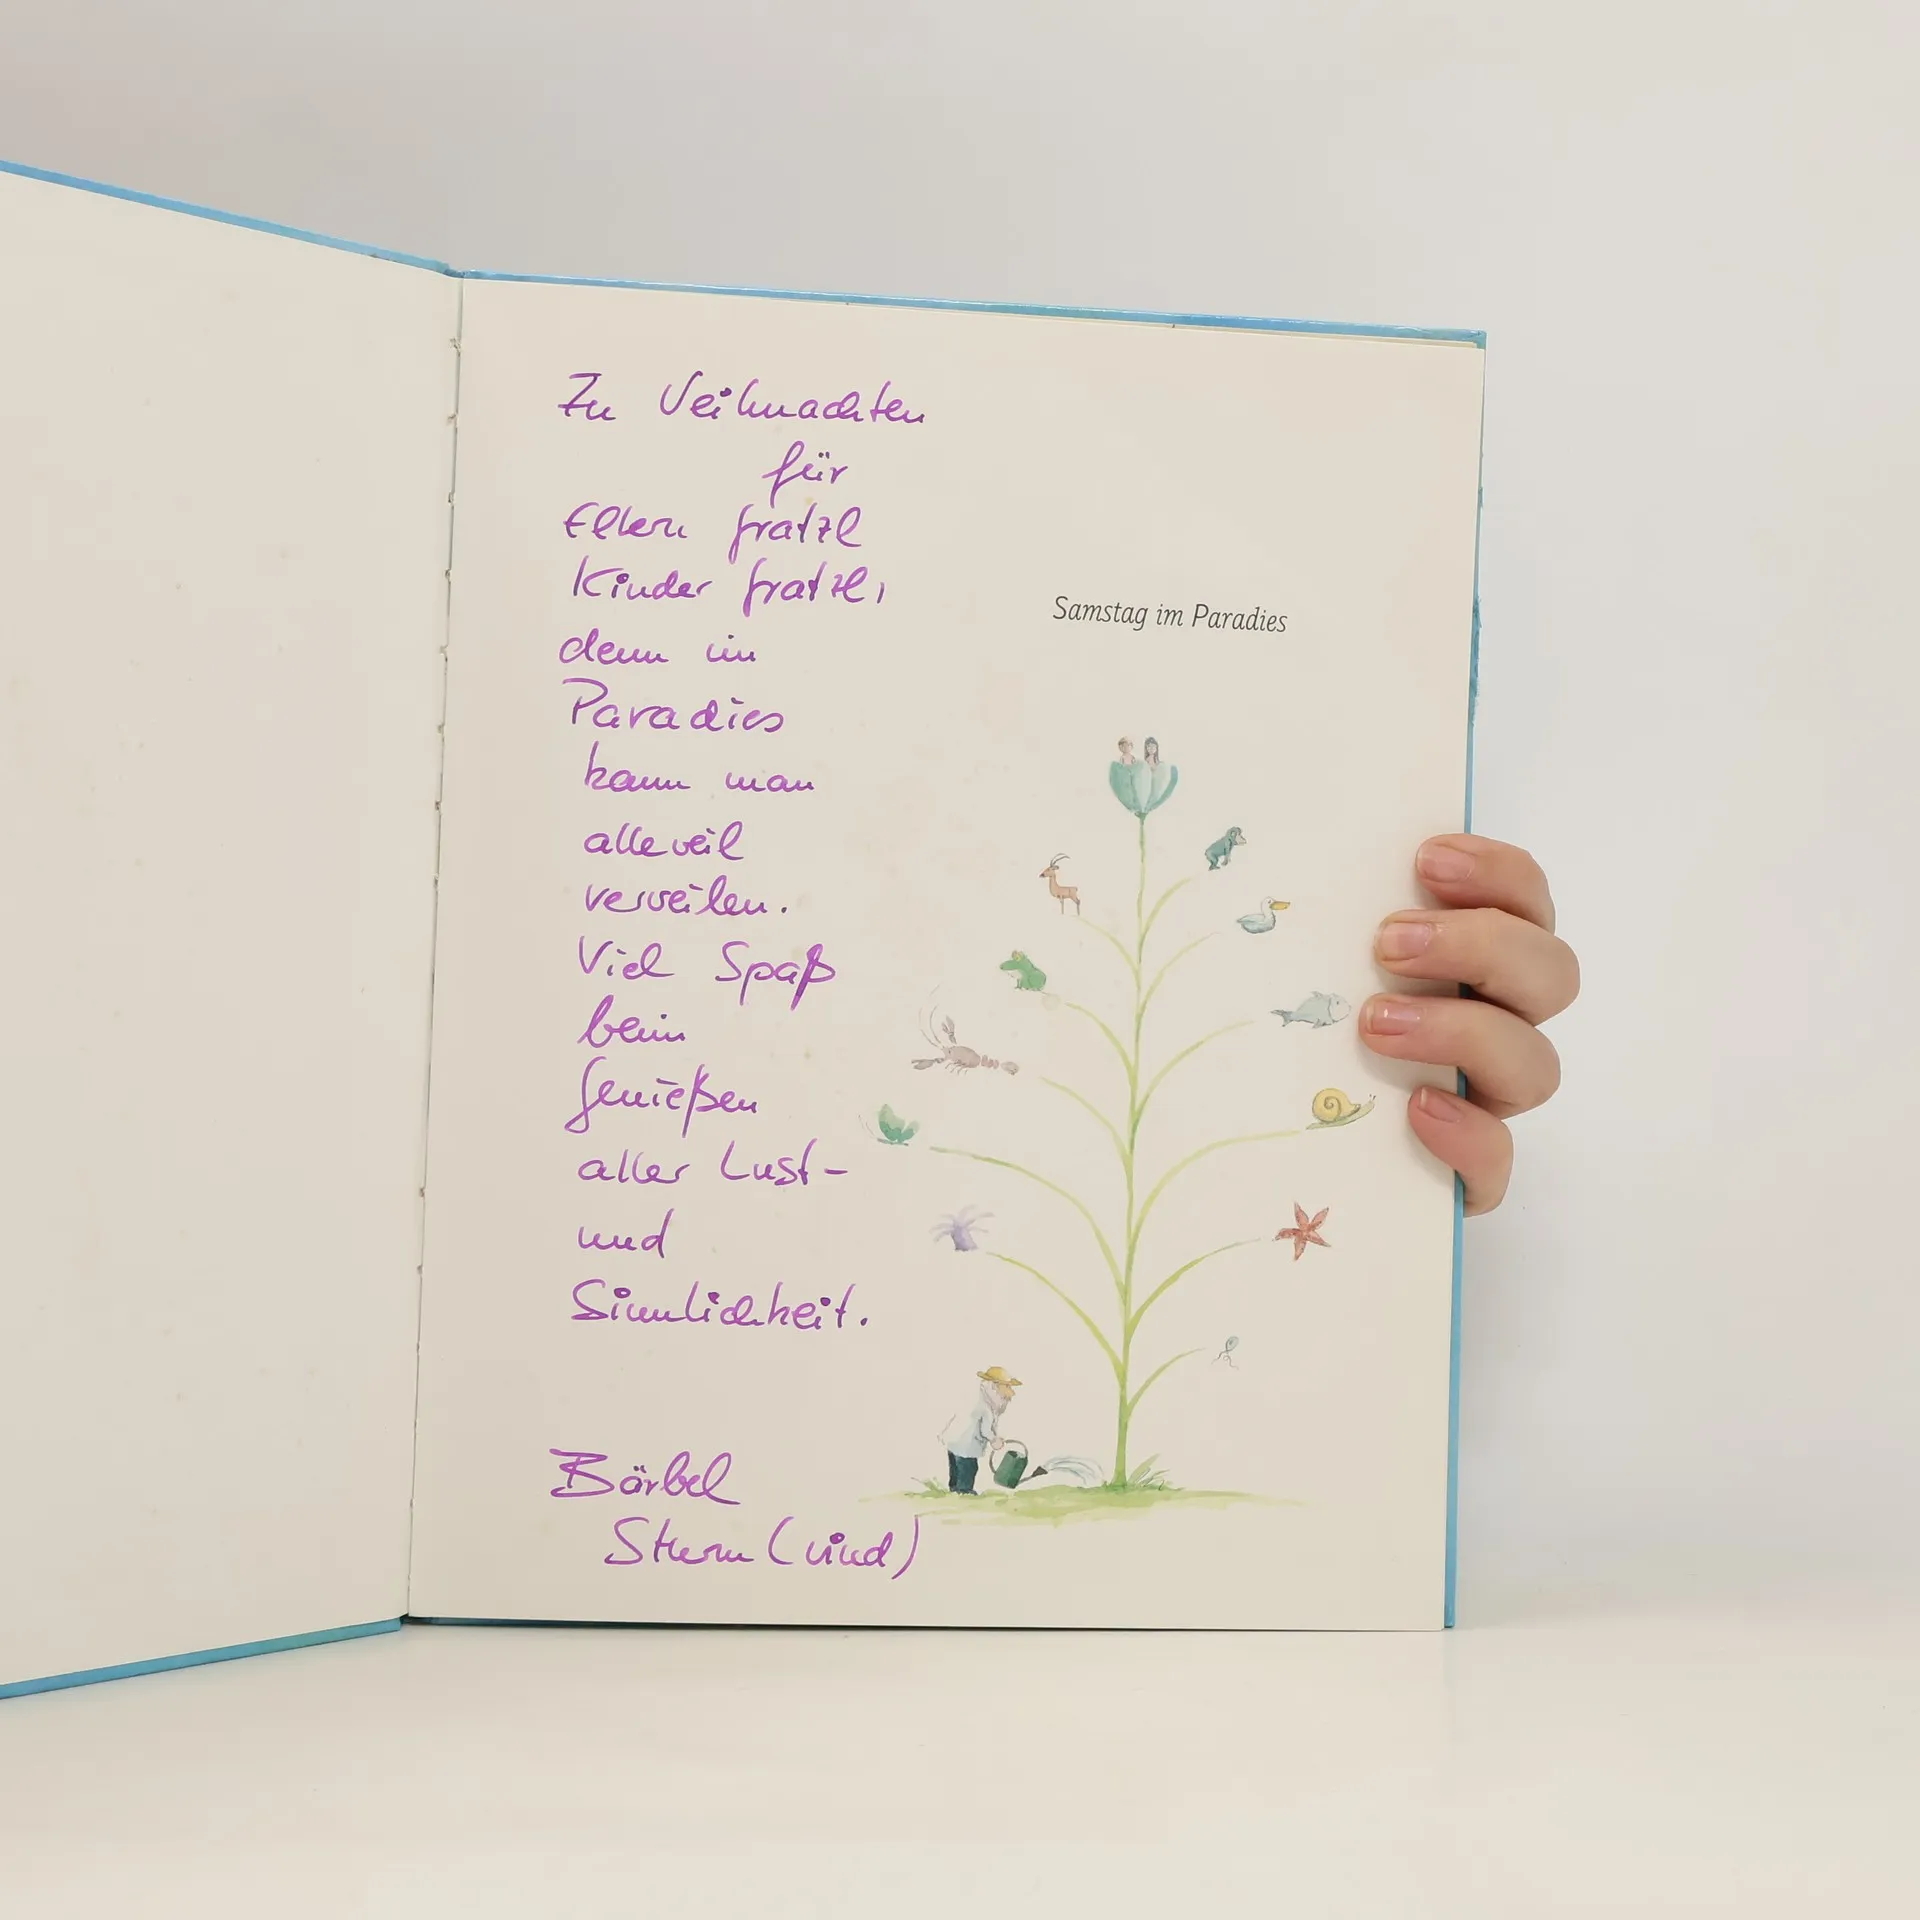 Zu Weihnachten
für
Eltern Gratzl
Kinder Gratzl,
denn im
Paradies
kann man
alleweil
verweilen.
Viel Spaß
beim
Genießen
aller Lust-
und
Sinnlichkeit.
Bärbel
Sturm (wind)
Samstag im Paradies